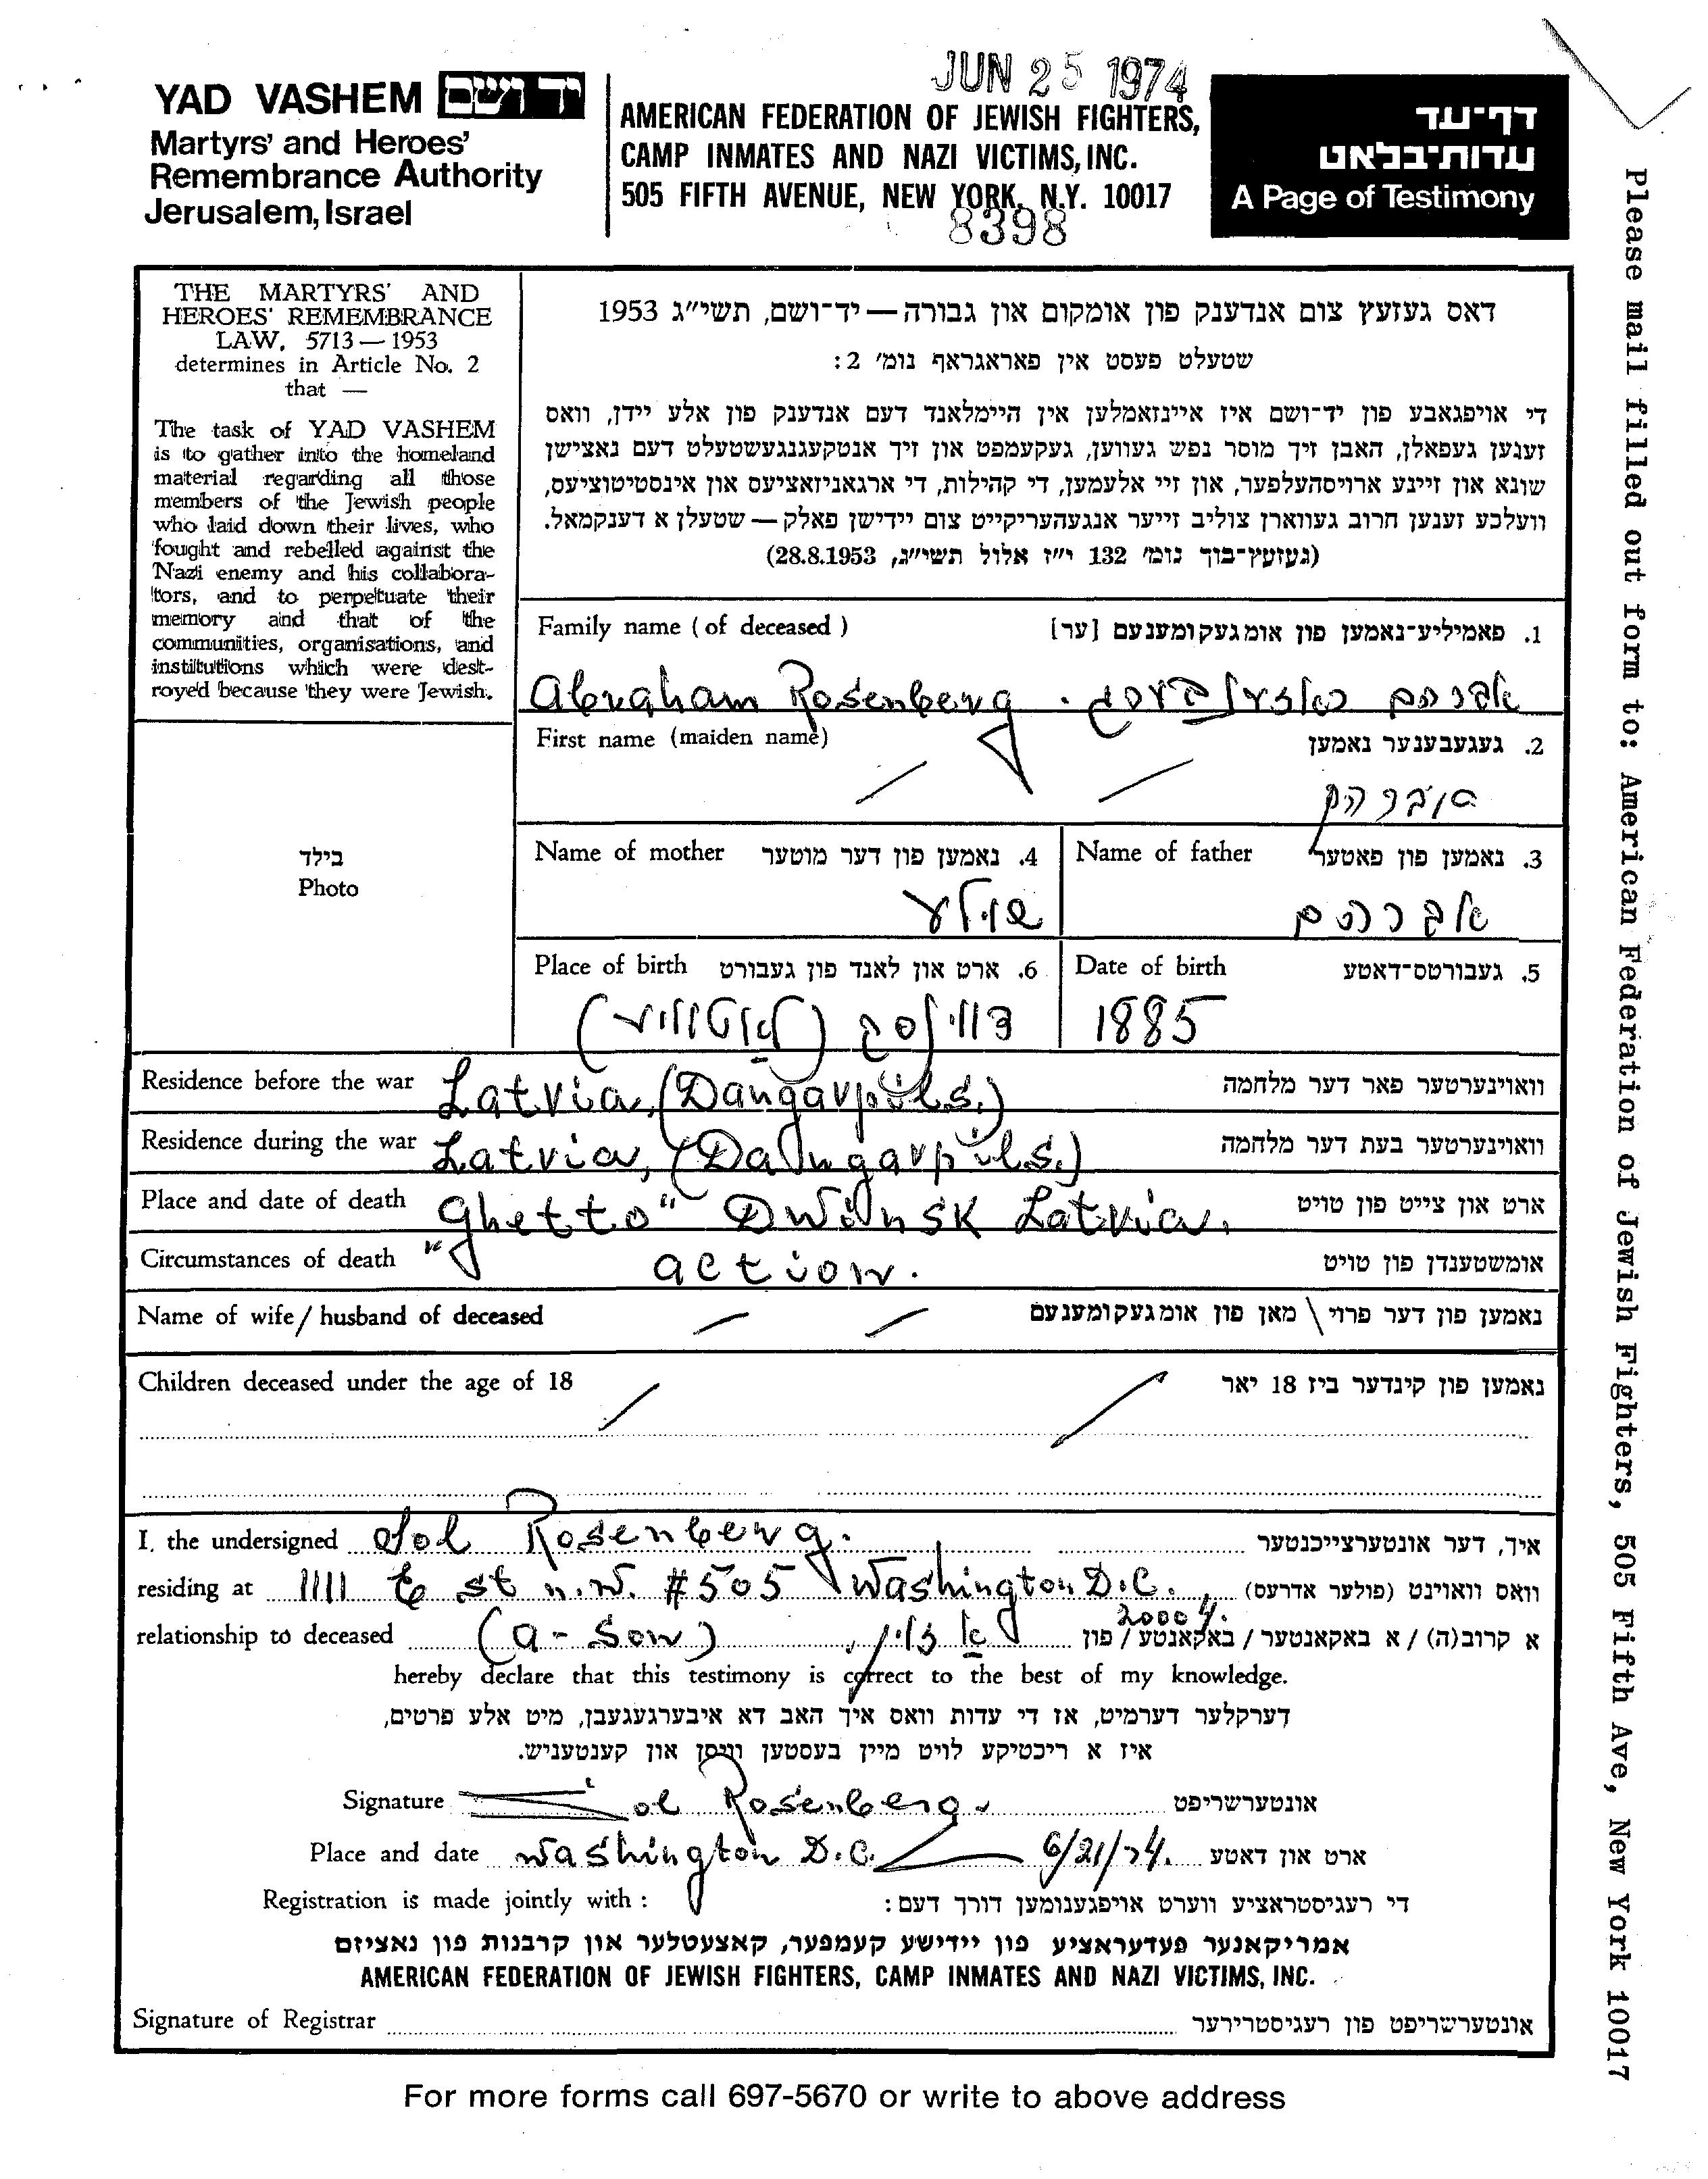 JUN 25 1974
YAD VASHEM יד ושם
Martyrs' and Heroes'
Remembrance Authority
Jerusalem, Israel
AMERICAN FEDERATION OF JEWISH FIGHTERS,
CAMP INMATES AND NAZI VICTIMS, INC.
505 FIFTH AVENUE, NEW YORK, N.Y. 10017
8398
דף־עד
עדות־בלאט
A Page of Testimony
Please mail filled out form to: American Federation of Jewish Fighters, 505 Fifth Ave, New York 10017
THE MARTYRS' AND
HEROES' REMEMBRANCE
LAW, 5713 — 1953
determines in Article No. 2
that —
The task of YAD VASHEM
is to gather into the homeland
material regarding all those
members of the Jewish people
who laid down their lives, who
fought and rebelled against the
Nazi enemy and his collabora-
tors, and to perpetuate their
memory and that of the
communities, organisations, and
institutions which were dest-
royed because they were Jewish.
דאס געזעץ צום אנדענק פון אומקום און גבורה — יד־ושם, תשי״ג 1953
שטעלט פעסט אין פאראגראף נומ׳ 2:
די אויפגאבע פון יד־ושם איז איינזאמלען אין היימלאנד דעם אנדענק פון אלע יידן, וואס
זענען געפאלן, האבן זיך מוסר נפש געווען, געקעמפט און זיך אנטקעגנגעשטעלט דעם נאצישן
שונא און זיינע ארויסהעלפער, און זיי אלעמען, די קהילות, די ארגאניזאציעס און אינסטיטוציעס,
וועלכע זענען חרוב געווארן צוליב זייער אנגעהעריקייט צום יידישן פאלק — שטעלן א דענקמאל.
(געזעץ־בוך נומ׳ 132 י״ז אלול תשי״ג, 28.8.1953)
Family name (of deceased) 1. פאמיליע־נאמען פון אומגעקומענעם [ער]
Abraham Rosenberg. אברהם ראזענבערג
First name (maiden name) 2. געגעבענער נאמען
אברהם
בילד
Photo
Name of mother 4. נאמען פון דער מוטער Name of father 3. נאמען פון פאטער
אברהם
Place of birth 6. ארט און לאנד פון געבורט Date of birth 5. געבורטס־דאטע
דווינסק (לאטוויע) 1885
Residence before the war Latvia, (Daugavpils.) וואוינערטער פאר דער מלחמה
Residence during the war Latvia, (Daugavpils.) וואוינערטער בעת דער מלחמה
Place and date of death Ghetto" Dwinsk Latvia, ארט און צייט פון טויט
Circumstances of death " action. אומשטענדן פון טויט
Name of wife / husband of deceased נאמען פון דער פרוי \ מאן פון אומגעקומענעם
Children deceased under the age of 18 נאמען פון קינדער ביז 18 יאר
I, the undersigned Sol Rosenberg. איך, דער אונטערצייכנטער
residing at 1111 E st n.w. #505 Washington D.C., וואס וואוינט (פולער אדרעס)
20004.
relationship to deceased (a - Son) א זון, א קרוב(ה) / א באקאנטער / באקאנטע / פון
hereby declare that this testimony is correct to the best of my knowledge.
דערקלער דערמיט, אז די עדות וואס איך האב דא איבערגעגעבן, מיט אלע פרטים,
איז א ריכטיקע לויט מיין בעסטען וויסן און קענטעניש.
Signature Sol Rosenberg. אונטערשריפט
Place and date Washington D.C. 6/21/74. ארט און דאטע
Registration is made jointly with: די רעגיסטראציע ווערט אויפגענומען דורך דעם:
אמריקאנער פעדעראציע פון יידישע קעמפער, קאצעטלער און קרבנות פון נאציזם
AMERICAN FEDERATION OF JEWISH FIGHTERS, CAMP INMATES AND NAZI VICTIMS, INC.
Signature of Registrar אונטערשריפט פון רעגיסטרירער
For more forms call 697-5670 or write to above address